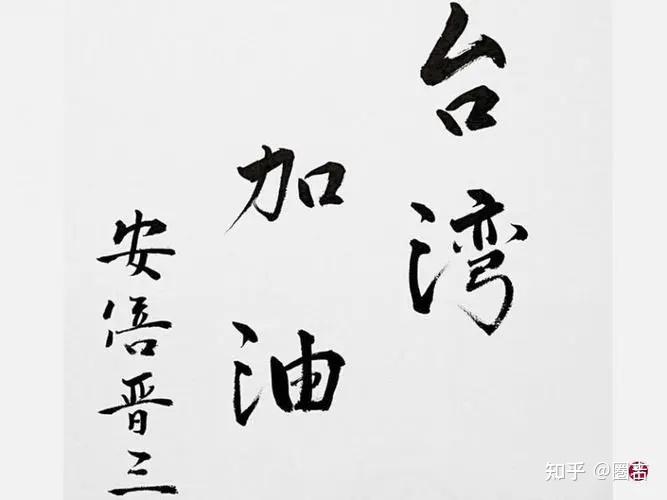 台湾
加油
安倍晋三
知乎 @圈吉